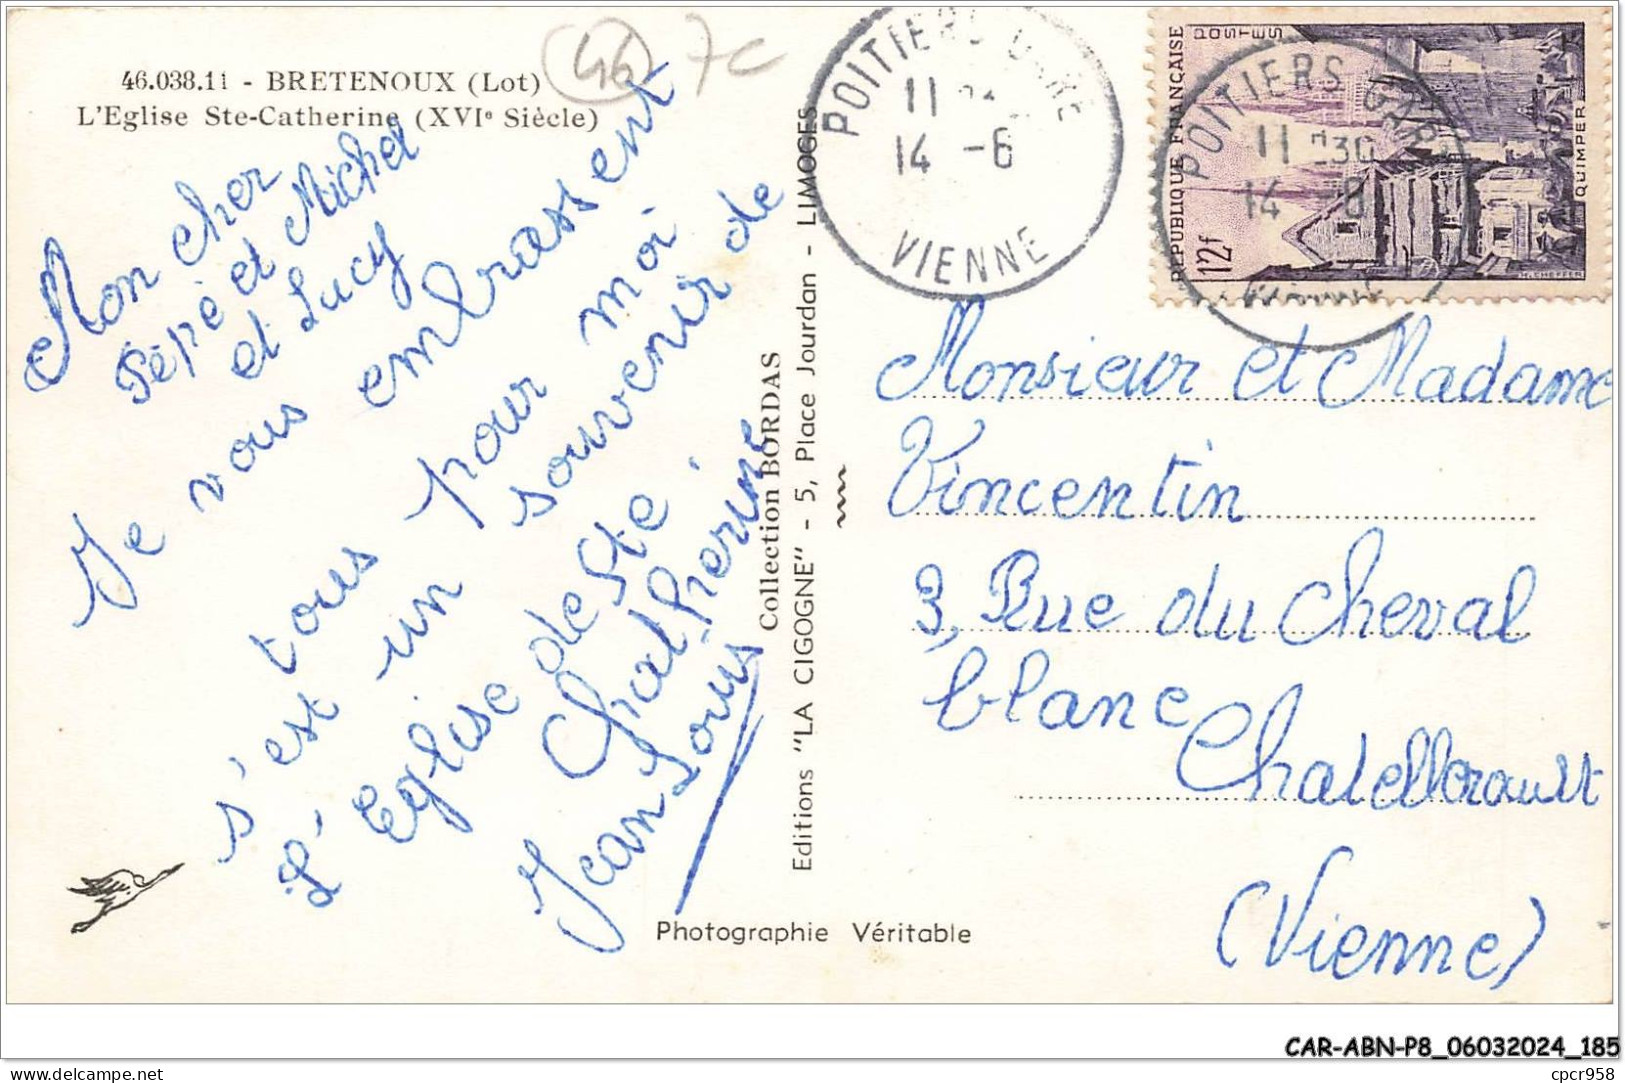 46.038.11 - BRETENOUX (Lot)
L'Eglise Ste-Catherine (XVIe Siècle)
46
7c
Mon cher
Pépé et Michel
et Lucy
Je vous embrassent
tous pour moi
s'est un souvenir de
L'Eglise de Ste
Chatherine
Jean Louis
Collection BORDAS
Editions "LA CIGOGNE" - 5, Place Jourdan - LIMOGES
Photographie Véritable
POITIERS GARE
11
14 -6
VIENNE
POITIERS GARE
11 H30
14 -6
RÉPUBLIQUE FRANÇAISE
POSTES
12f
QUIMPER
Monsieur et Madame
Vincentin
3, Rue du Cheval
blanc
Chatellerault
(Vienne)
CAR-ABN-P8_06032024_185
delcampe.net
cpcr958